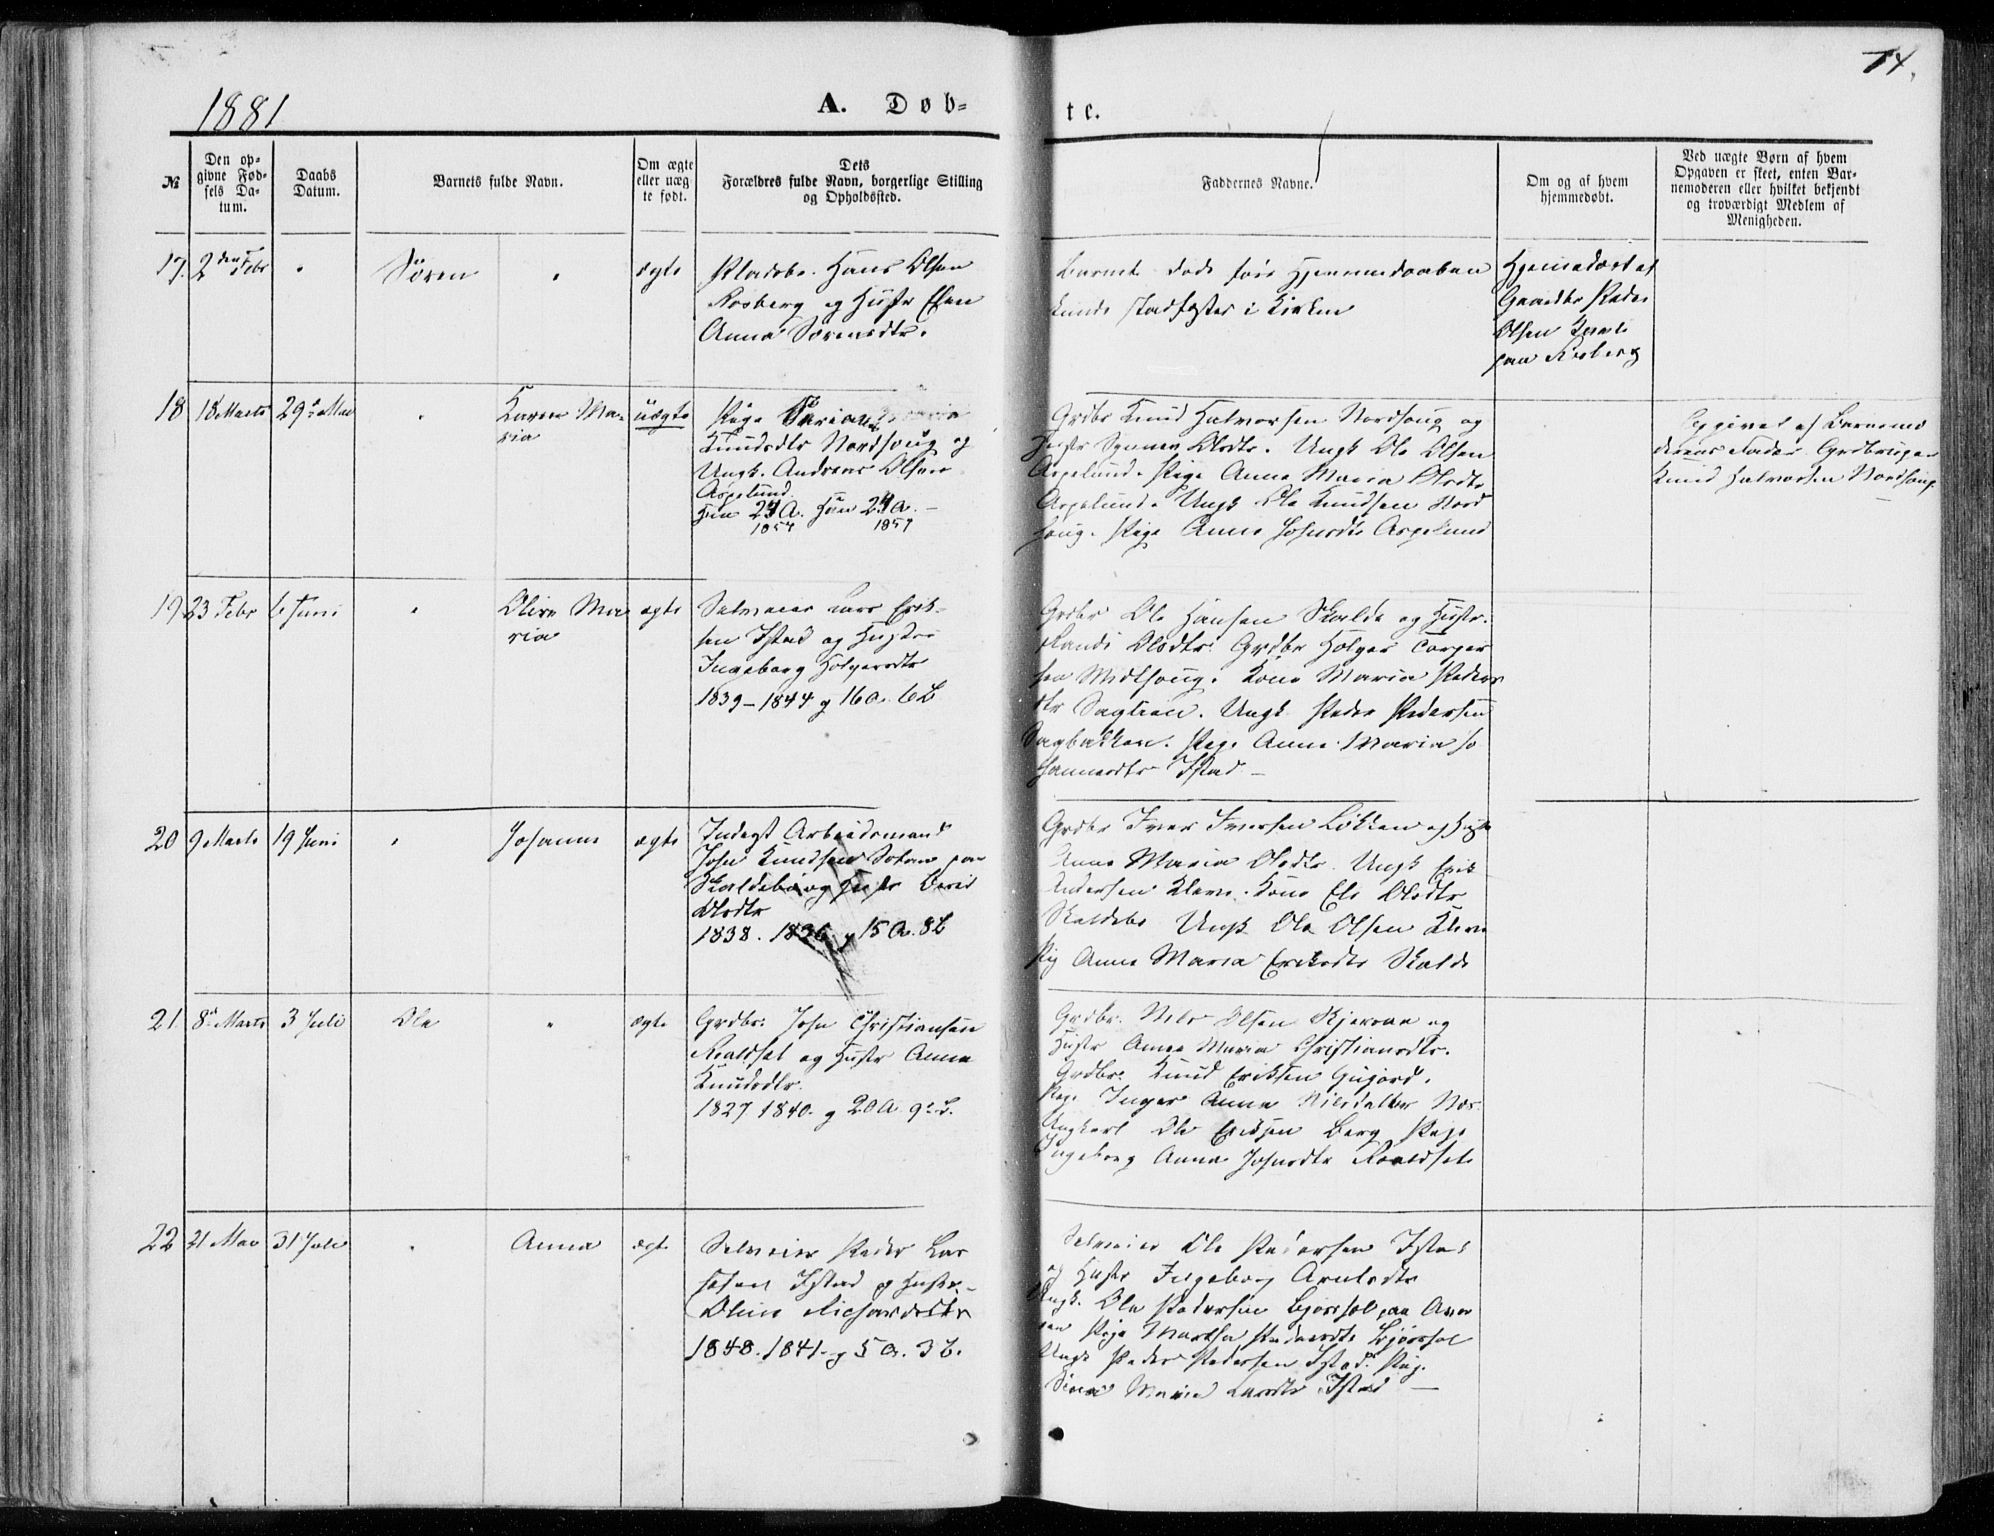 1881
A. Døb-
te.
74.
№
Den op-
givne Fød-
sels Da-
tum.
Daabs
Datum.
Barnets fulde Navn.
Om ægte
eller uæg-
te født.
Dets
Forældres fulde Navn, borgerlige Stilling
og Opholdssted.
Faddernes Navne.
Om og af hvem
hjemmedøbt.
Ved uægte Børn af hvem
Opgaven er skeet, enten Bar-
nemoderen eller hvilket bekjendt
og troværdigt Medlem af
Menigheden.
17. 2den Febr
Sören
ægte
Pladsbr. Hans Olsen
Rosberg og Hustr Elen
Anna Sörensdtr.
Barnet døde før Hjemmedaaben
kunde stadfæstes i Kirken
Hjemmedøbt af
Gaardbr Peder
Olsen
paa Rosberg
18 18 Marts 29de Mai
Karen Ma-
ria
uægte
Pige
Knudsdtr Nordhoug og
Ungk. Andreas Olsen
Aspelund.
Hun 24 A. Han 24 A. —
1857 1857
Grdbr Knud Halvorsen Nordhoug og
Hustr Olsdtr. Ungk Ole Olsen
Aspelund. Pige Anne Maria Olsdtr
Aspelund. Ungk Ole Knudsen Nord
houg. Pige Anne Johnsdtr Aspelund
Opgivet af Barnemo
derens Fader Grdbruger
Knud Halvorsen Nordhoug.
19 23 Febr 6 Juni
Olive Ma
ria
ægte
Selveier Lars Erik-
sen Istad og Hustru
Ingeborg Holgersdtr
1839 – 1844 g 16 A. 6 B
Grdbr Ole Hansen Skalde og Hustr.
Randi Olsdtr. Grdbr Holger Casper
sen Midthoug. Kone Maria Peders
dtr Saglien. Ungk Peder Pedersen
Sagbakken. Pige Anne Maria Jo
hannesdtr Istad —
20 9 Marts 19 Juni
Johanne
ægte
Inderst Arbeidsmand
John Knudsen paa
Skaldebö og Hustr Berit
Olsdtr
1838. 1836 g 15 A. 8 B
Grdbr Iver Iversen Løkken og Hustr
Anne Maria Olsdtr. Ungk Erik
Andersen Kleve. Kone Eli Olsdtr
Skaldebö Ungk Ole Olsen Kleve
Pig Anne Maria Eriksdtr Skalde
21 8de Marts 3 Juli
Ole
ægte
Grdbr. John Christiansen
Roaldset og Hustr Anne
Knudsdtr.
1827 1840. g 20 A 9de B.
Grdbr. Nils Olsen og
Hustr Anne Maria Christiansdtr.
Grdbr. Knud Eriksen Gujord.
Pige Inger Anne Nilsdatter Næs
Ungkarl Ole Eriksen Berg Pige
Ingeborg Anne Johnsdtr Roaldset
22 21 Mai 31 Juli
Anna
ægte
Selveier Peder Lar
sen Istad og Hustr.
Oline Richardsdtr
1848. 1841. g 5 A. 3 B.
Selveier Ole Pedersen Istad
og Hustr Ingeborg Arntsdtr
Ungk. Ole Pedersen Bjørset paa Aver
øen Pige Martha Pedersdtr Bjørset
Ungk Peder Pedersen Istad. Pig.
Maria Larsdtr Istad —